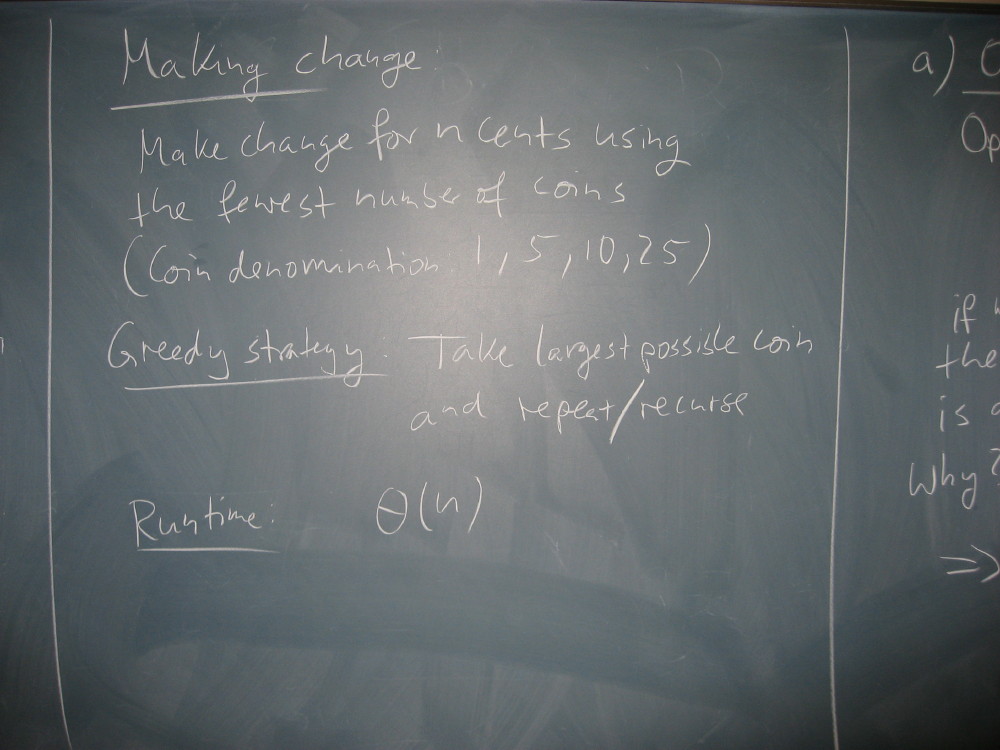 Making change:
Make change for n cents using
the fewest number of coins
(Coin denomination 1, 5, 10, 25)
Greedy strategy: Take largest possible coin
and repeat/recurse
Runtime: Θ(n)
a)
if
the
is
Why?
⇒